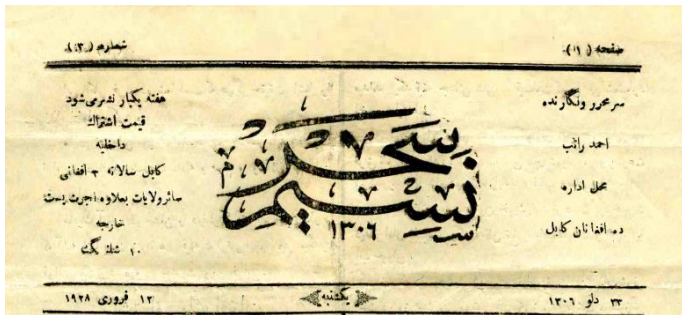 صفحه (۱)
شماره (۳)
سر محرر ونگارنده
احمد راتب
محل اداره
ده افغانان کابل
نسیم سحر
۱۳۰۶
هفته یکبار نشر می شود
قیمت اشتراك
داخلیه
کابل سالانه ۳ افغانی
سائر ولایات بعلاوه اجرت پست
خارجه
۱۰ شلنگ
۲۳ دلو ۱۳۰۶
یکشنبه
۱۲ فروری ۱۹۲۸